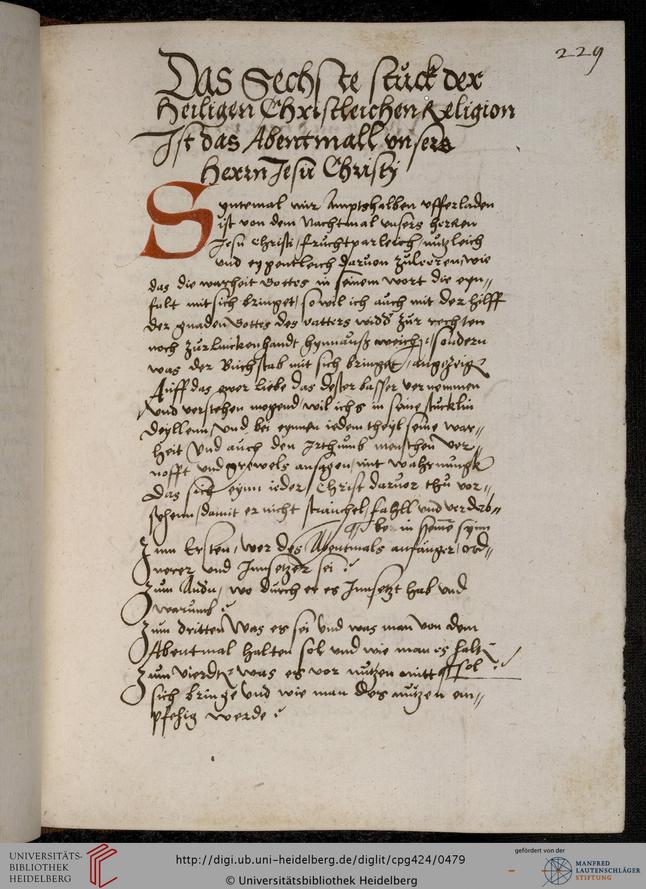 229
Das Sechste stuck der
Heiligen Christleichen Religion
Ist das Abentmall unsers
Herrn Jesu Christj
Syntemal mir Amptshalben ufferladen
ist von dem Nachtmal unsers herren
Jesu Christi / fruchtparleich / nutzleich
und eygentleich daruon zuleeren / wie
das die warheit Gottes in seinem wort die eyn„
falt mit sich bringet / so wil ich auch mit der hilff
der gnaden Gottes des vatters widder zur rechten
noch zur linckenhandt hynnauß weichen / sondern
was der Buchstab mit sich bringet / anzeigen
Auff das ewer liebe das dester basser vernemmen
und verstehen mogend / wil ichs in seine stucklin
deyllenn / und bei eynem iedem theyl seine war„
heit und auch den Irthumb menschen ver„
nofft und grewels ansagen / mit
Das sich eynn ieder Christ daruor thu vor„
sehenn / damit er nicht strauchel / fahll und verderb„
be in seinem synn
Zum Ersten / wer des Abentmals anfenger / ord„
nerer und Innsetzer sei ?
Zum Andern / wo durch er es Innsetzt hab und
warumb ?
Zum dritten Was es sei und was man von dem
Abentmal halten sol und wie man es halten
sol ?
Zum vierdten was es vor nutzen mitt
sich bringe und wie man des nutzen em„
pfehig werde ?
UNIVERSITÄTS-
BIBLIOTHEK
HEIDELBERG
http://digi.ub.uni-heidelberg.de/diglit/cpg424/0479
© Universitätsbibliothek Heidelberg
gefördert von der
MANFRED
LAUTENSCHLÄGER
STIFTUNG